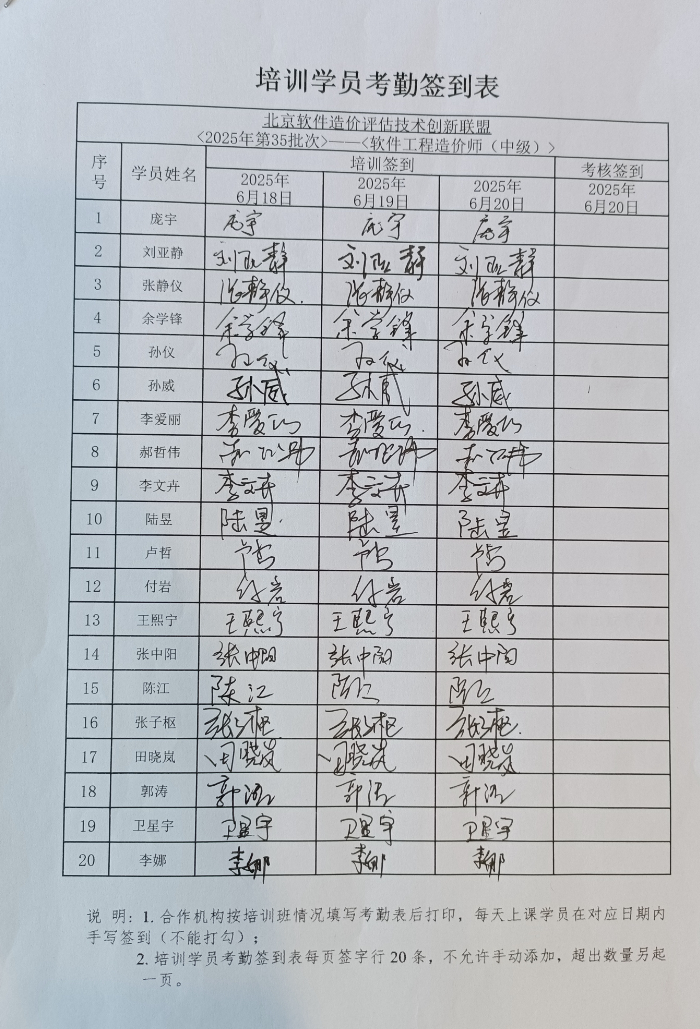 培训学员考勤签到表
北京软件造价评估技术创新联盟
<2025年第35批次>——<软件工程造价师（中级）>
序号 学员姓名 培训签到 考核签到
2025年6月18日 2025年6月19日 2025年6月20日 2025年6月20日
1 庞宇 庞宇 庞宇 庞宇
2 刘亚静 刘亚静 刘亚静 刘亚静
3 张静仪 张静仪 张静仪 张静仪
4 余学锋 余学锋 余学锋 余学锋
5 孙仪 孙仪 孙仪 孙仪
6 孙威 孙威 孙威 孙威
7 李爱丽 李爱丽 李爱丽 李爱丽
8 郝哲伟 郝哲伟 郝哲伟 郝哲伟
9 李文卉 李文卉 李文卉 李文卉
10 陆昱 陆昱 陆昱 陆昱
11 卢哲 卢哲 卢哲 卢哲
12 付岩 付岩 付岩 付岩
13 王熙宁 王熙宁 王熙宁 王熙宁
14 张中阳 张中阳 张中阳 张中阳
15 陈江 陈江 陈江 陈江
16 张子枢 张子枢 张子枢 张子枢
17 田晓岚 田晓岚 田晓岚 田晓岚
18 郭涛 郭涛 郭涛 郭涛
19 卫星宇 卫星宇 卫星宇 卫星宇
20 李娜 李娜 李娜 李娜
说 明：1. 合作机构按培训班情况填写考勤表后打印，每天上课学员在对应日期内
手写签到（不能打勾）；
2. 培训学员考勤签到表每页签字行 20 条，不允许手动添加，超出数量另起
一页。